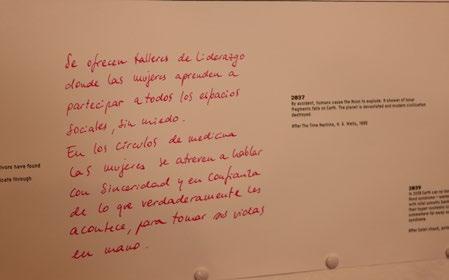 Se ofrecen talleres de Liderazgo
donde las mujeres aprenden a
participar a todos los espacios
sociales, sin miedo.
En los círculos de medicina
las mujeres se atreven a hablar
con sinceridad y en confianza
de lo que verdaderamente les
acontece, para tomar sus vidas
en mano.
ivors have found
icate through
2037
By accident, humans cause the Moon to explode. A shower of lunar
fragments falls on Earth. The planet is devastated and modern civilization
destroyed.
After The Time Machine, H. G. Wells, 1895
2039